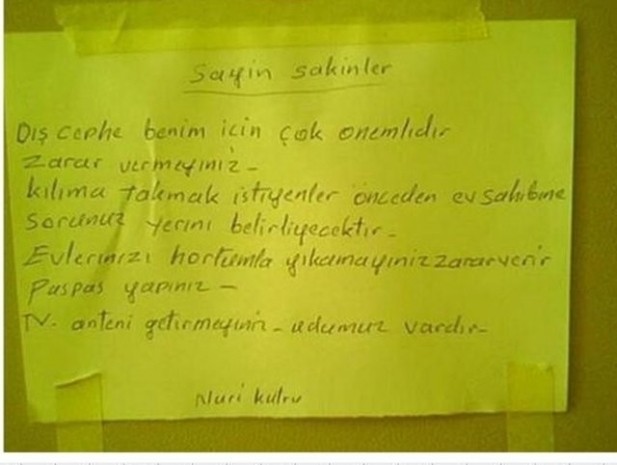 Sayin sakinler
Dış cephe benim için çok onemlidir
Zarar vermeyiniz -
Kılıma takmak istiyenler önceden ev sahibine
Sorunuz yerini belirliyecektir -
Evlerinizi hortumla yıkamayınız zarar verir
Paspas yapınız -
TV. anteni getirmeyiniz - udumuz vardır -
Nuri